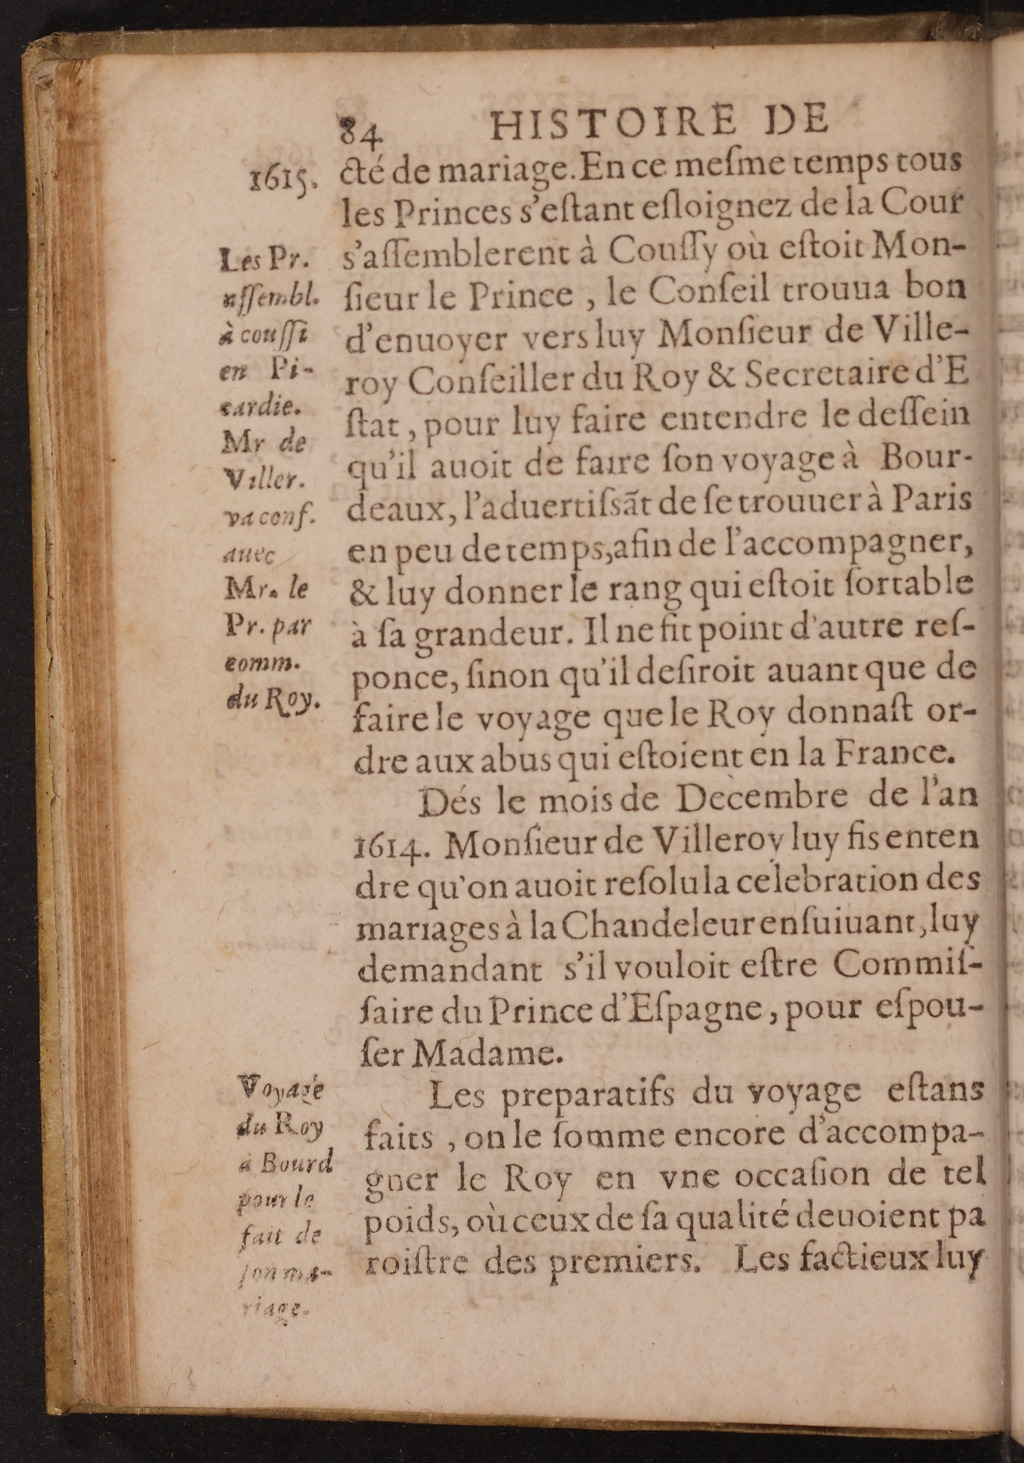 84 HISTOIRE DE
1615.
cté de mariage. En ce meſme temps tous
les Princes s'eſtant eſloignez de la Cour
s'aſſemblerent à Couſſy où eſtoit Mon-
ſieur le Prince, le Conſeil trouua bon
d'enuoyer vers luy Monſieur de Ville-
roy Conſeiller du Roy & Secretaire d'E
ſtat, pour luy faire entendre le deſſein
qu'il auoit de faire ſon voyage à Bour-
deaux, l'aduertiſsãt de ſe trouuer à Paris
en peu de temps, afin de l'accompagner,
& luy donner le rang qui eſtoit ſortable
à ſa grandeur. Il ne fit point d'autre reſ-
ponce, ſinon qu'il deſiroit auant que de
faire le voyage que le Roy donnaſt or-
dre aux abus qui eſtoient en la France.
Dés le mois de Decembre de l'an
1614. Monſieur de Villeroy luy fis enten
dre qu'on auoit reſolu la celebration des
mariages à la Chandeleur enſuiuant, luy
demandant s'il vouloit eſtre Commiſ-
ſaire du Prince d'Eſpagne, pour eſpou-
ſer Madame.
Les preparatifs du voyage eſtans
faits, on le ſomme encore d'accompa-
gner le Roy en vne occaſion de tel
poids, où ceux de ſa qualité deuoient pa
roiſtre des premiers. Les factieux luy
Les Pr.
aſſembl.
à couſſi
en Pi-
cardie.
Mr de
Viller.
va conf.
auec
Mr. le
Pr. par
comm.
du Roy.
Voyage
du Roy
à Bourd
pour le
fait de
ſon ma-
riage.